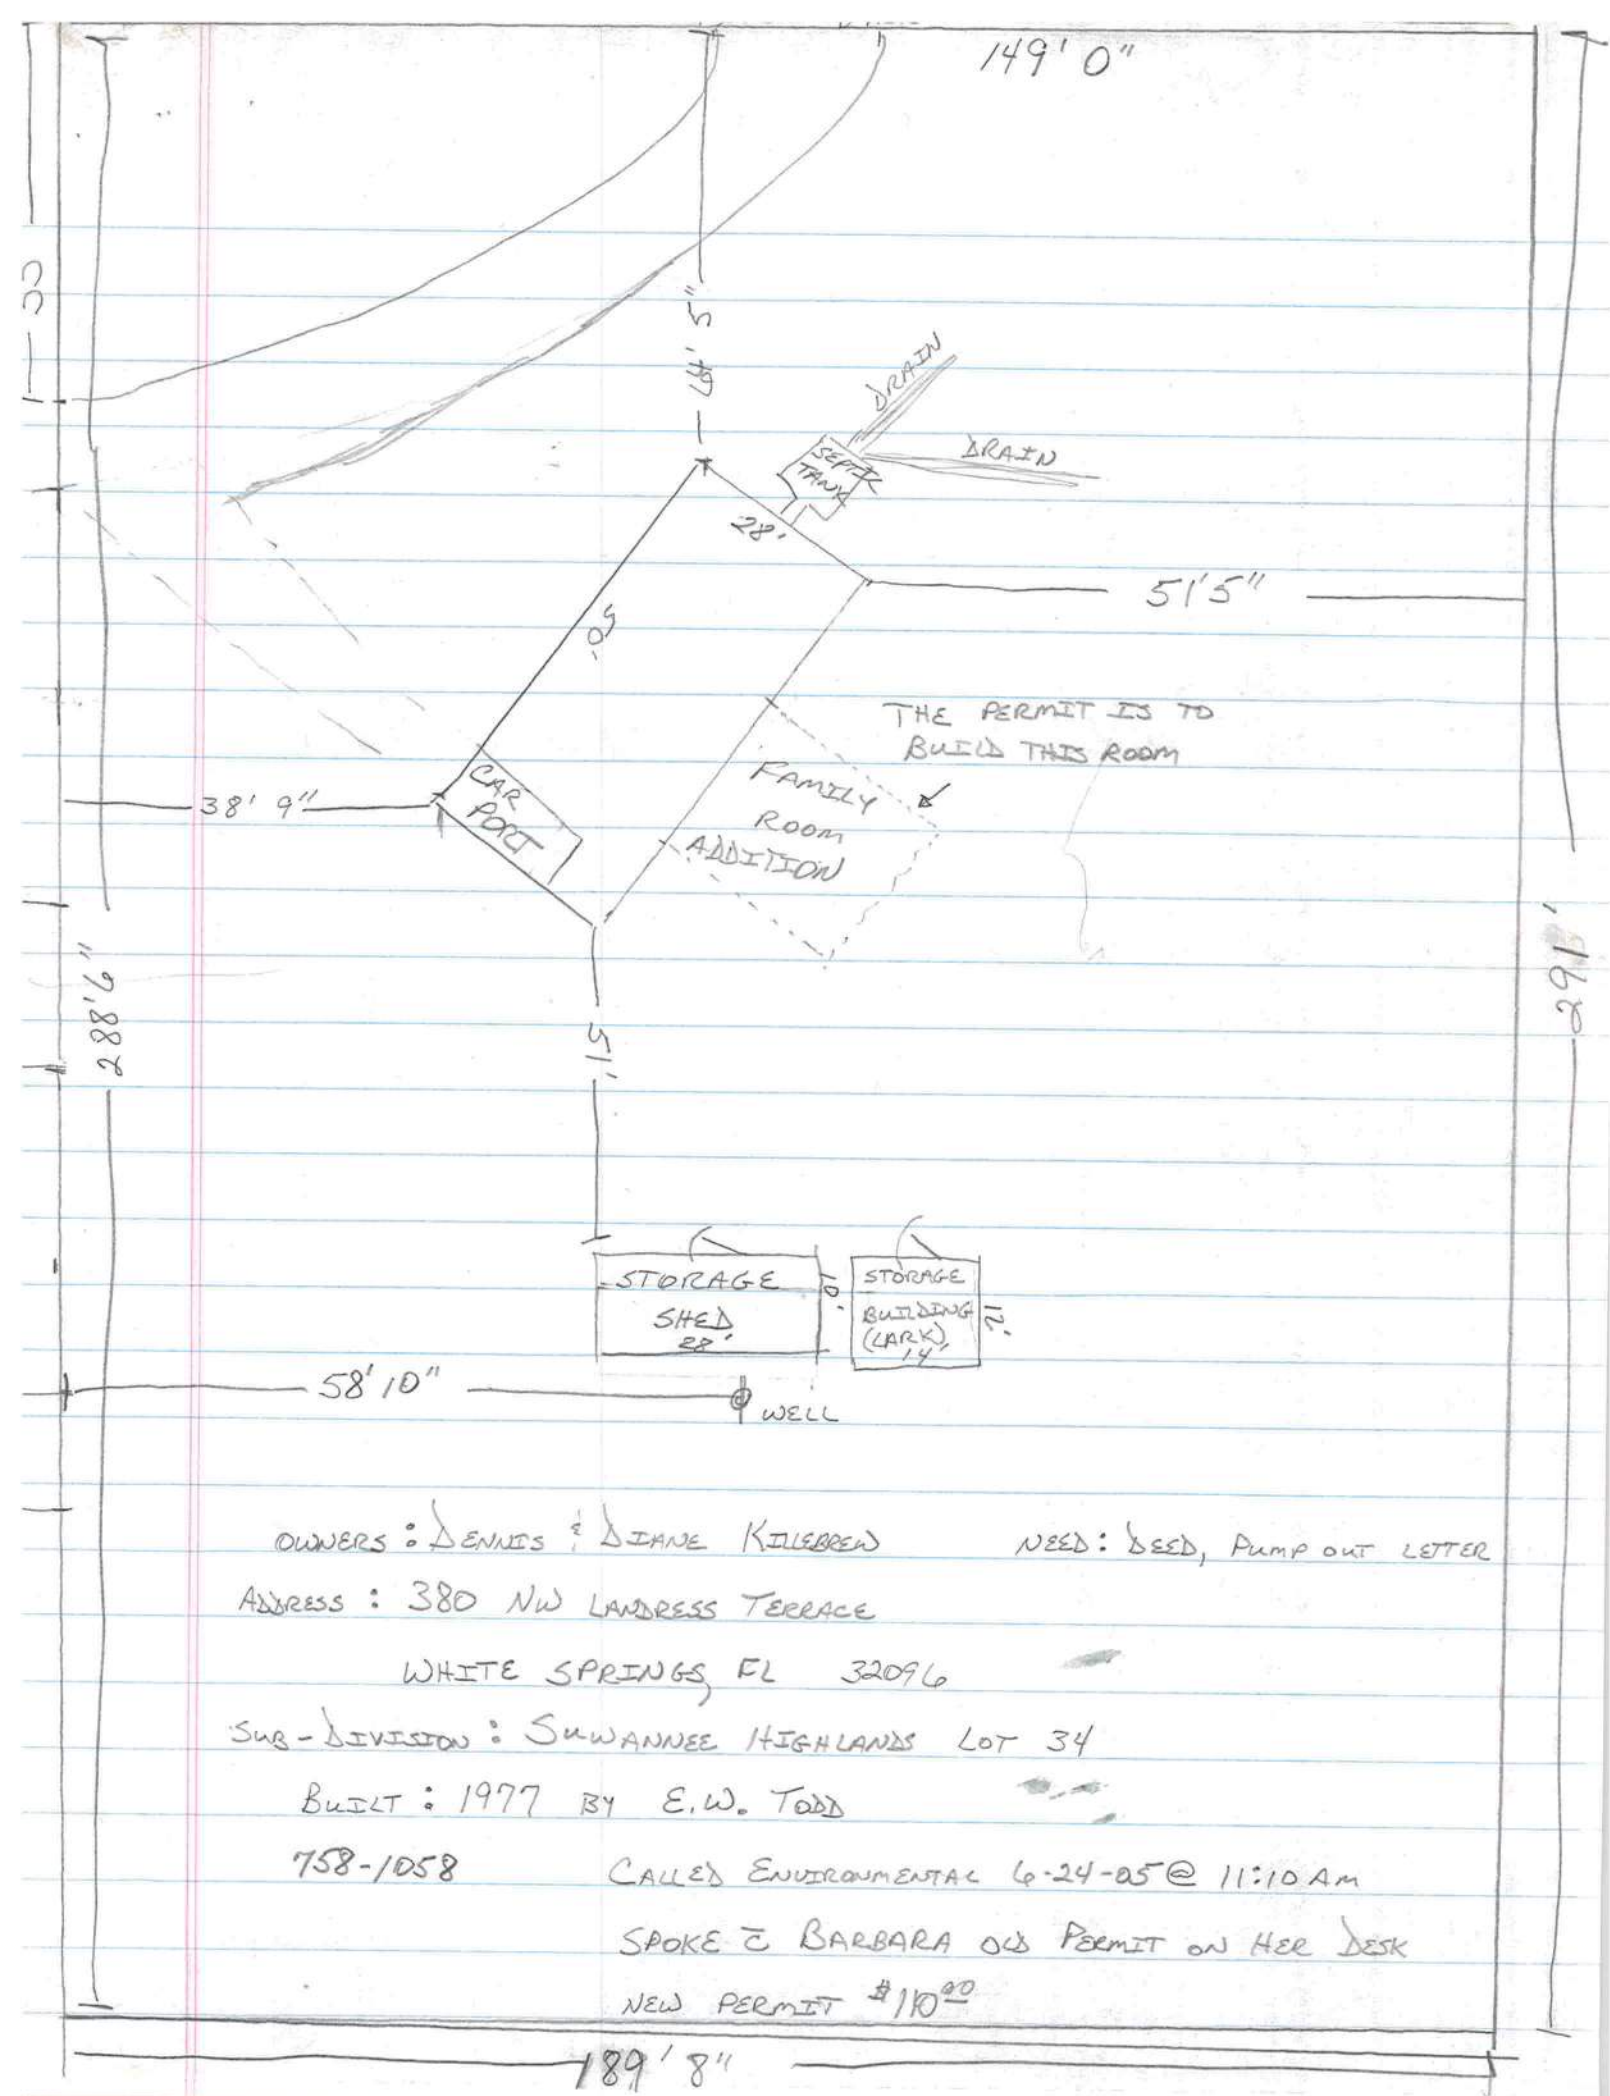 149' 0"
64' 5"
DRAIN
DRAIN
SEPTIC
TANK
28'
51'5"
50'
THE PERMIT IS TO
BUILD THIS ROOM
CAR
PORT
FAMILY
ROOM
ADDITION
38' 9"
288'6"
291'
51'
STORAGE
SHED
28'
10'
STORAGE
BUILDING
(LARK)
14'
12'
58' 10"
WELL
OWNERS: DENNIS & DIANE KILLEBREW NEED: DEED, PUMP OUT LETTER
ADDRESS: 380 NW LANDRESS TERRACE
WHITE SPRINGS, FL 32096
SUB-DIVISION: SUWANNEE HIGHLANDS LOT 34
BUILT: 1977 BY E.W. TODD
758-1058 CALLED ENVIRONMENTAL 6-24-05 @ 11:10 AM
SPOKE c̄ BARBARA OLD PERMIT ON HER DESK
NEW PERMIT $110.00
189' 8"